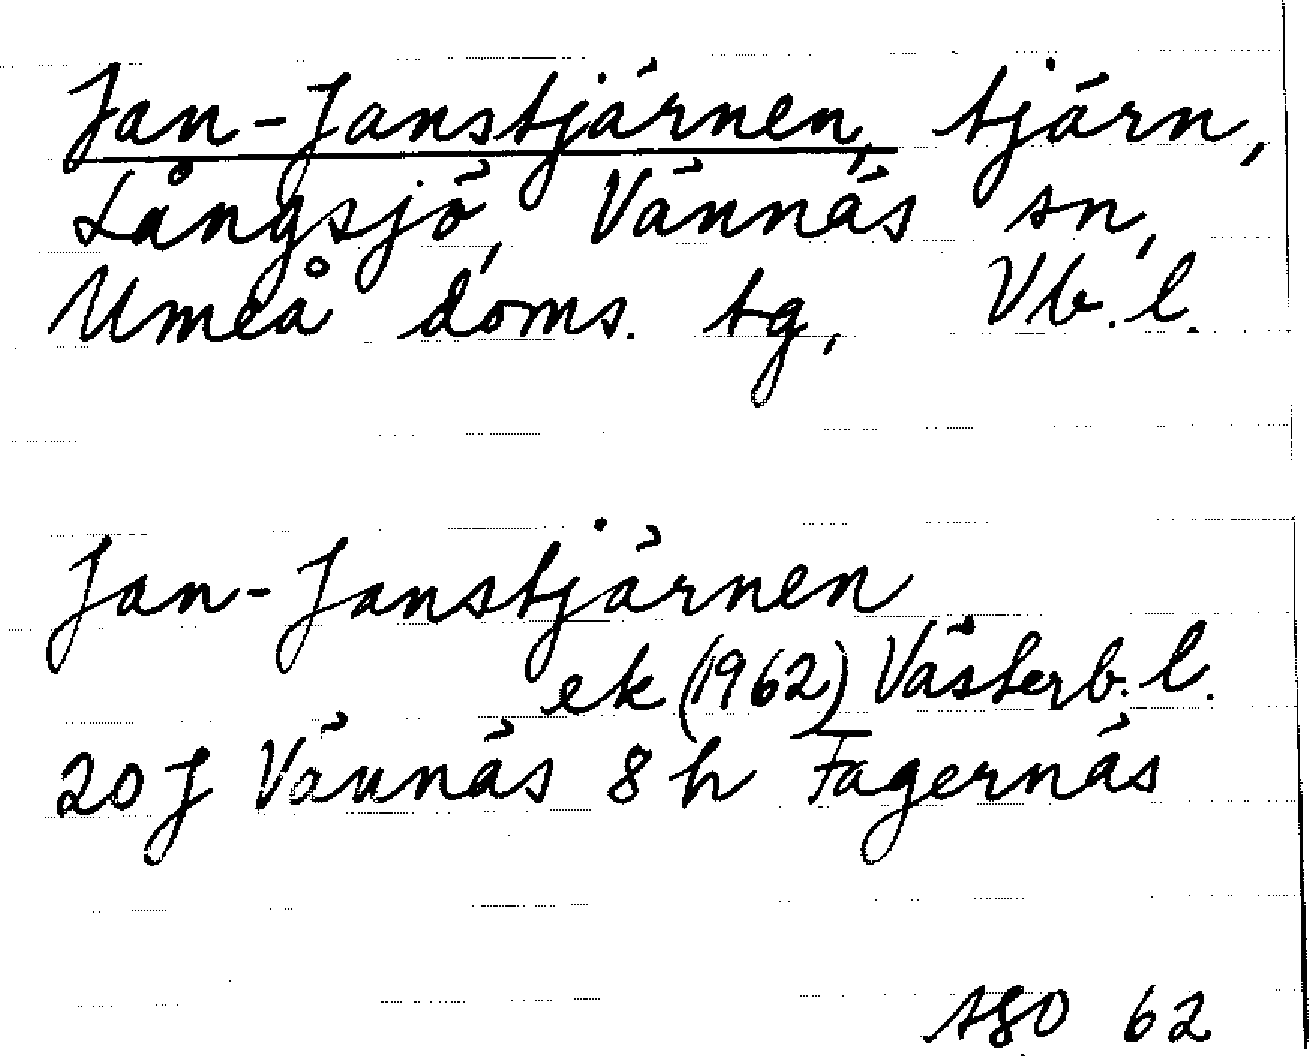 Jan-Janstjärnen, tjärn,
Långsjö, Vännäs sn,
Umeå doms. tg, Vb.l.
Jan-Janstjärnen
ek (1962) Västerb.l.
20 J Vännäs 8 h Fagernäs
62